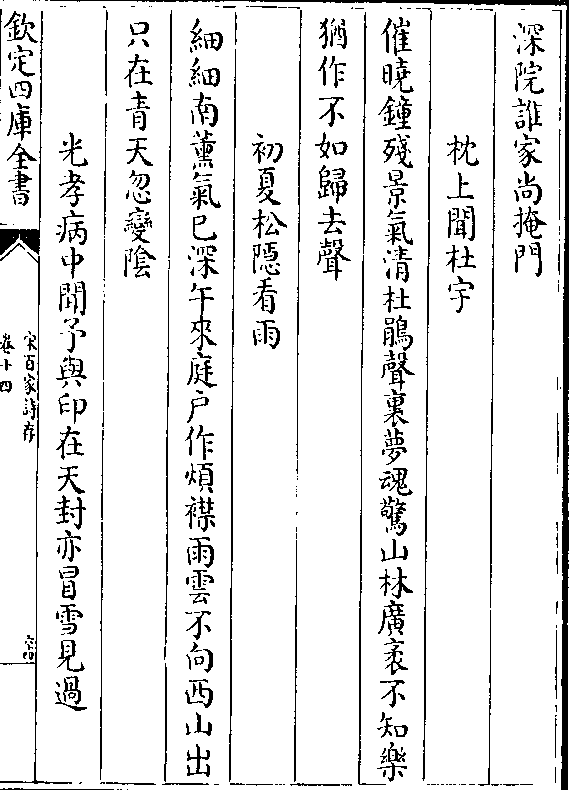 深院誰家尚掩門
枕上聞杜宇
催曉鐘殘景氣清杜鵑聲裏夢魂驚山林廣袤不知樂
猶作不如歸去聲
初夏松隠看雨
細細南薰氣巳深午來庭户作煩襟雨雲不向西山出
只在青天忽變陰
光孝病中聞予與印在天封亦冒雪見過
欽定四庫全書
宋百家詩存
卷十四